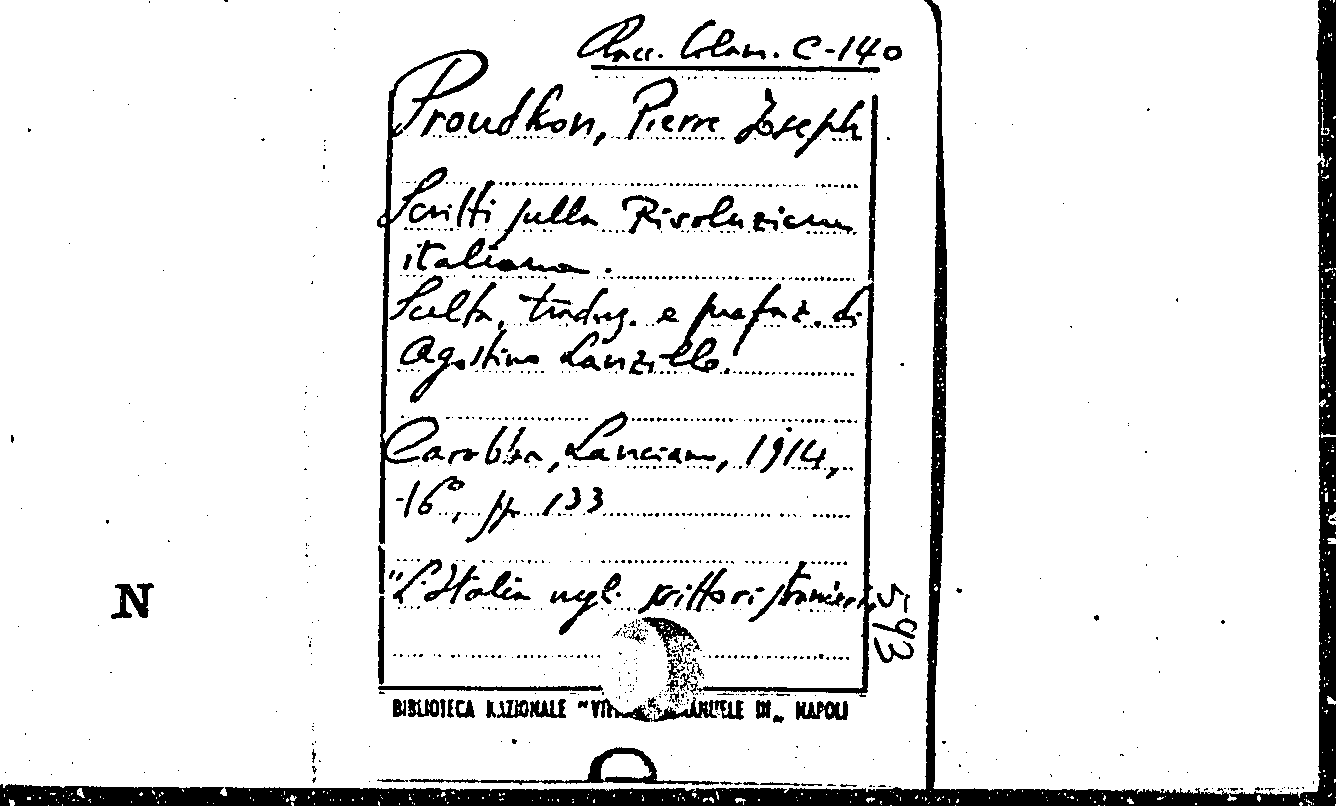 Racc. Colam. C-140
Proudhon, Pierre Joseph
Scritti sulla Rivoluzione
italiana.
Scelta, traduz. e prefaz. di
Agostino Lanzillo.
Carabba, Lanciano, 1914,
-16°, pp. 133
"L'Italia negli scrittori stranieri,
5-93
N
BIBLIOTECA NAZIONALE "VIT MANUELE III„ NAPOLI